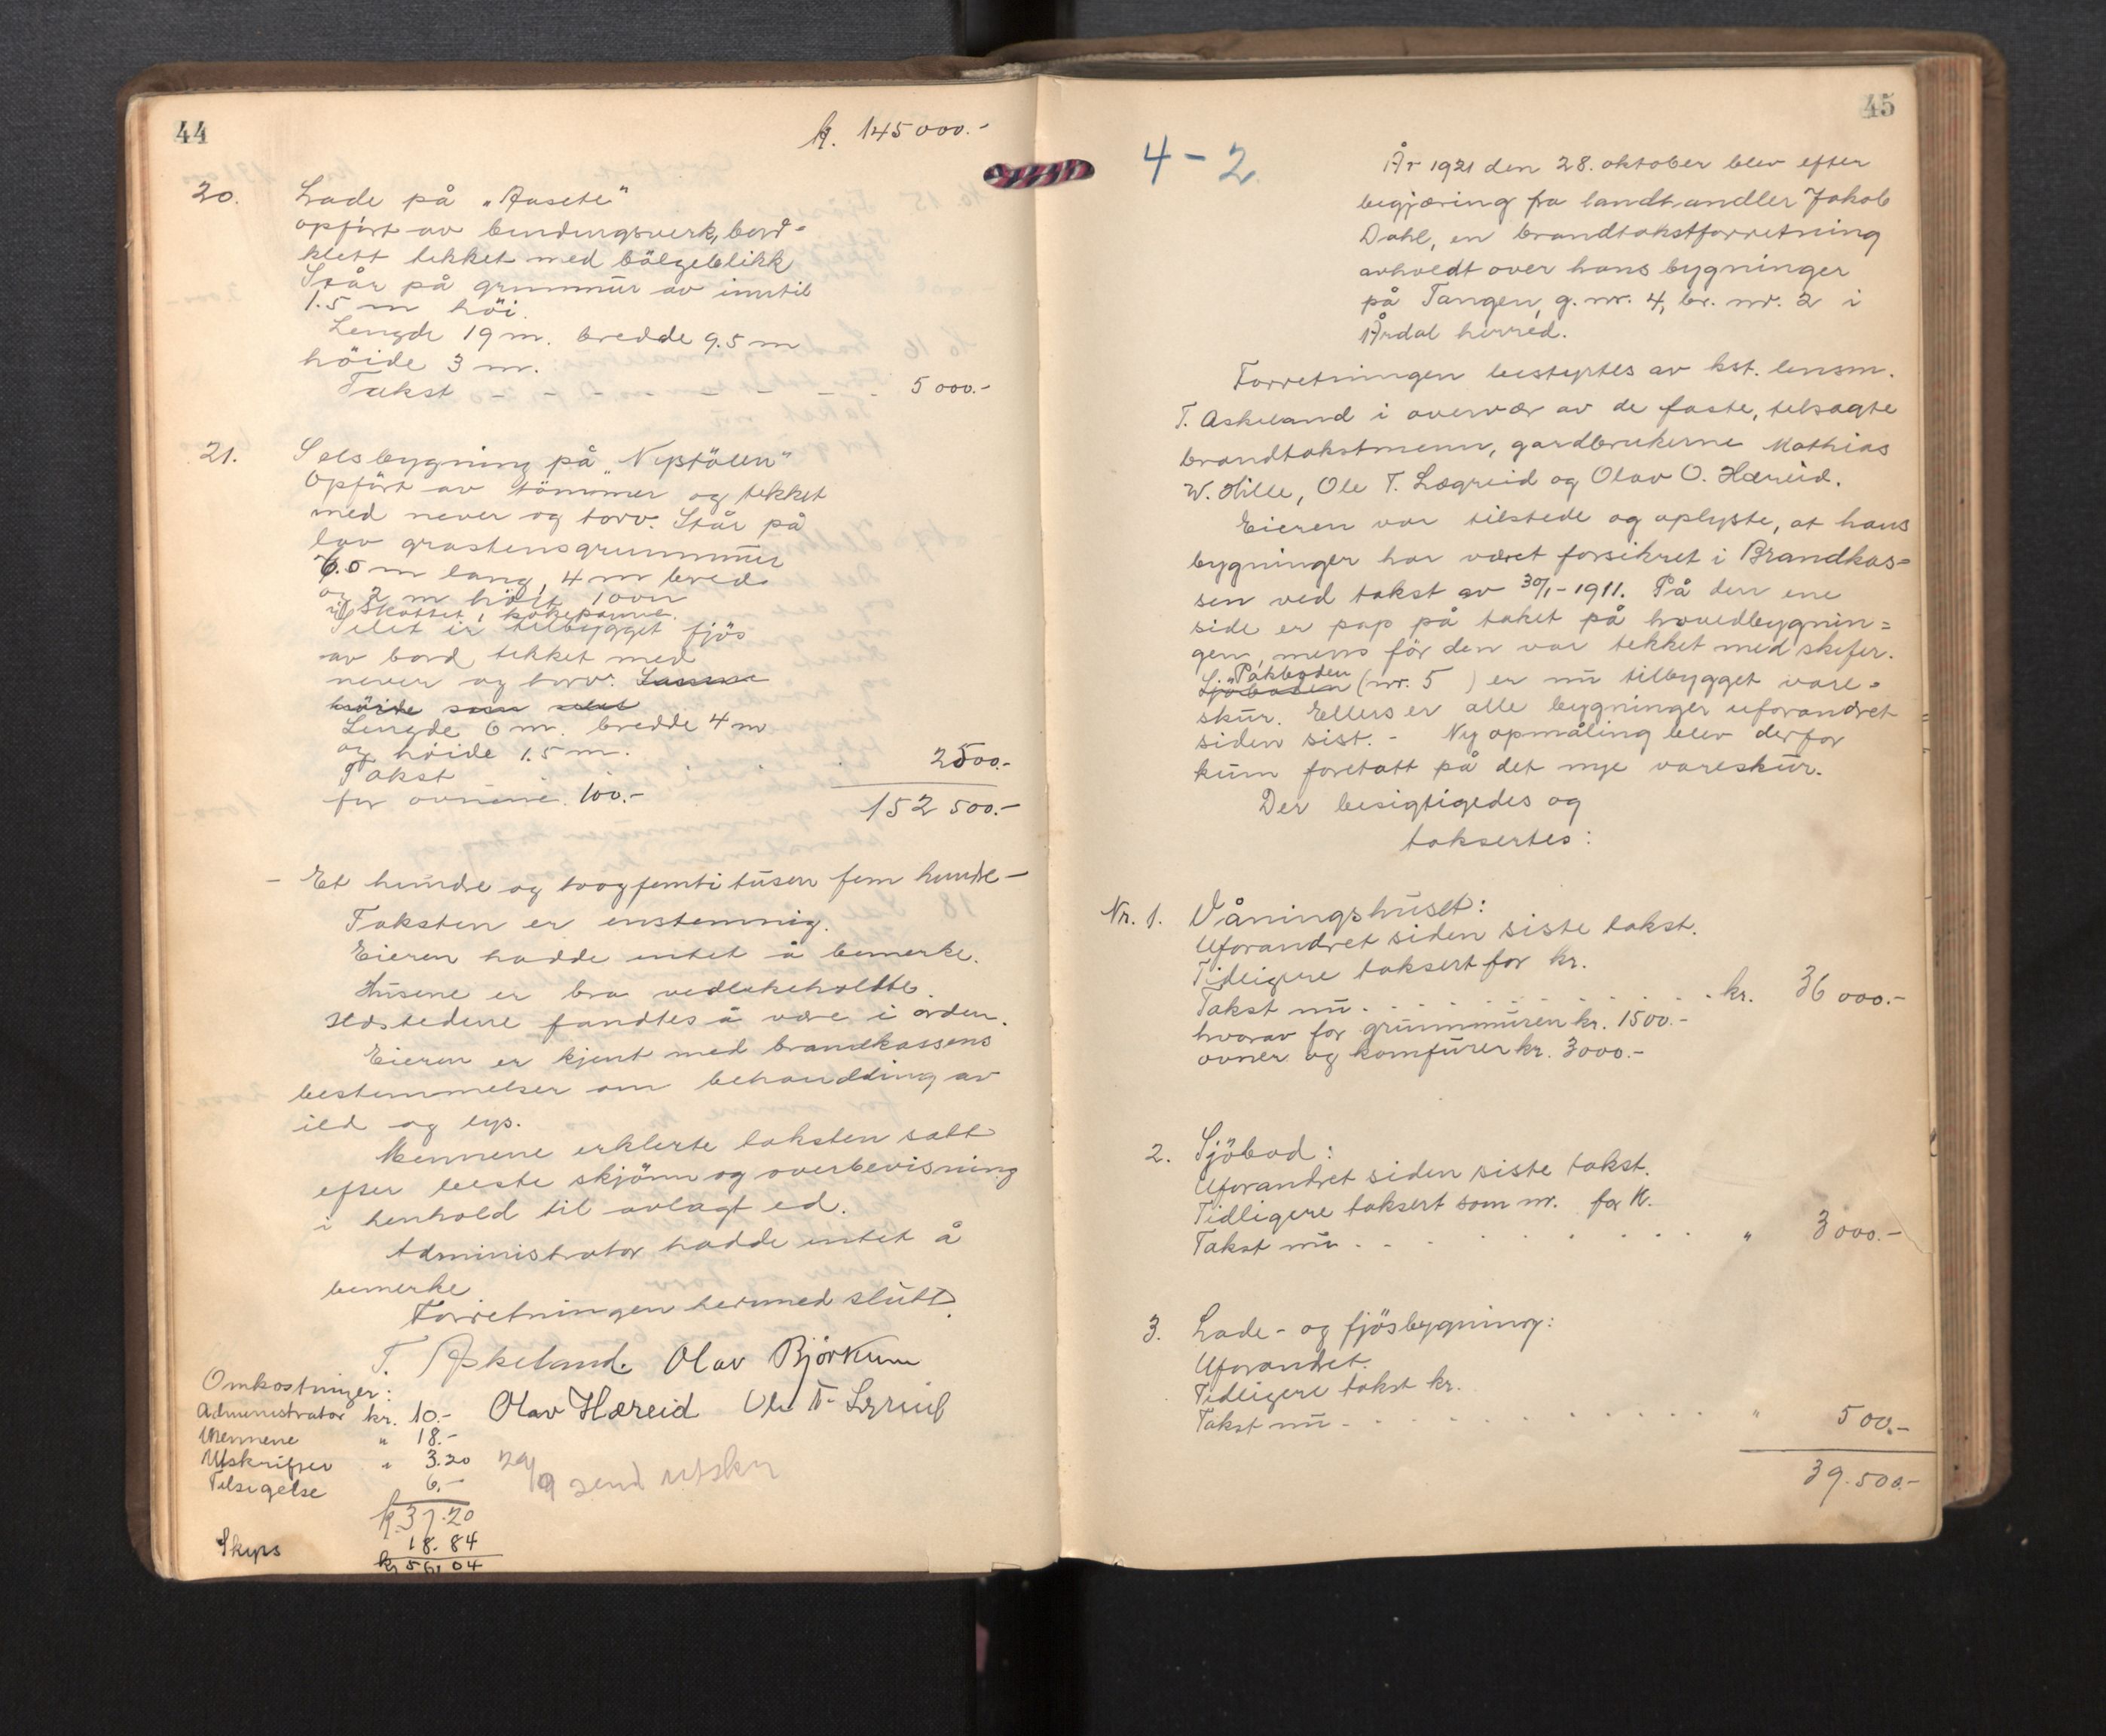 44
kr. 145 000.-
20. Lade på „Aasete"
opført av bindingsverk, bord-
klætt tekket med bölgeblikk
Står på grunnmur av inntil
1.5 m höi.
Lengde 19 m. bredde 9.5 m
höide 3 m.
Takst - - - - - - - 5 000.-
21. Selsbygning på „Nystölen"
Opfört av tömmer og tekket
med never og torv. Står på
lav grastensgrunnmur
7.5 m lang, 4 m bred
og 2 m höit, 1 ovn
i kokepanne
Selet er tilbygget fjös
av bord tekket med
never og torv. Samme
höide som selet
Lengde 6 m. bredde 4 m
og höide 1.5 m.
Takst . . . . 2500.-
for ovnene 100.-
152 500.-
- Et hundre og toogfemti tusen fem hundre -
Taksten er enstemmig.
Eieren hadde intet å bemerke.
Husene er bra vedlikeholdte.
Ildstedene fandtes å være i orden.
Eieren er kjent med brandkassens
bestemmelser om behandling av
ild og lys.
Mennene erklerte taksten satt
efter beste skjönn og overbevisning
i henhold til avlagt ed.
Administrator hadde intet å
bemerke
Forretningen hermed slutt.
T. Askeland. Olav Björkum
Olav Hæreid Ole T. Lægreid
Omkostninger:
Administrator kr. 10.-
Mennene " 18.-
Utskrifter " 3.20
Tilsigelse 6.-
kr. 37.20
Skyss 18.84
kr 56,04
29/9 send utskr
45
4 - 2
År 1921 den 28. oktober blev efter
begjæring fra landhandler Jakob
Dahl, en brandtakstforretning
avholdt over hans bygninger
på Tangen, g. nr. 4, br. nr. 2 i
Årdal herred.
Forretningen bestyrtes av kst. lensm.
T. Askeland i overvær av de faste, tilsagte
brandtakstmenn, gardbrukerne Mathias
W. Hille, Ole T. Lægreid og Olav O. Hæreid.
Eieren var tilstede og oplyste, at hans
bygninger har været forsikret i Brandkas=
sen ved takst av 30/1-1911. På den ene
side er pap på taket på hovedbygnin=
gen, mens för den var tekket med skifer.
Pakboden
Sjöboden (nr. 5 ) er nu tilbygget vare-
skur. Ellers er alle bygninger uforandret
siden sist. - Ny opmåling blev derfor
kun foretatt på det nye vareskur.
Der besigtigedes og
taksertes:
Nr. 1. Våningshuset:
Uforandret siden siste takst.
Tidligere taksert for kr.
Takst nu . . . . . . . . . . kr. 36 000.-
hvorav for grunnmuren kr. 1500.-
ovner og komfurer kr. 3000.-
2. Sjöbod:
Uforandret siden siste takst.
Tidligere taksert som nr. for K.
Takst nu . . . . . . . . . " 3 000.-
3. Lade- og fjösbygning:
Uforandret.
Tidligere takst kr.
Takst nu - . . . . . . . . . " 500.-
39.500.-